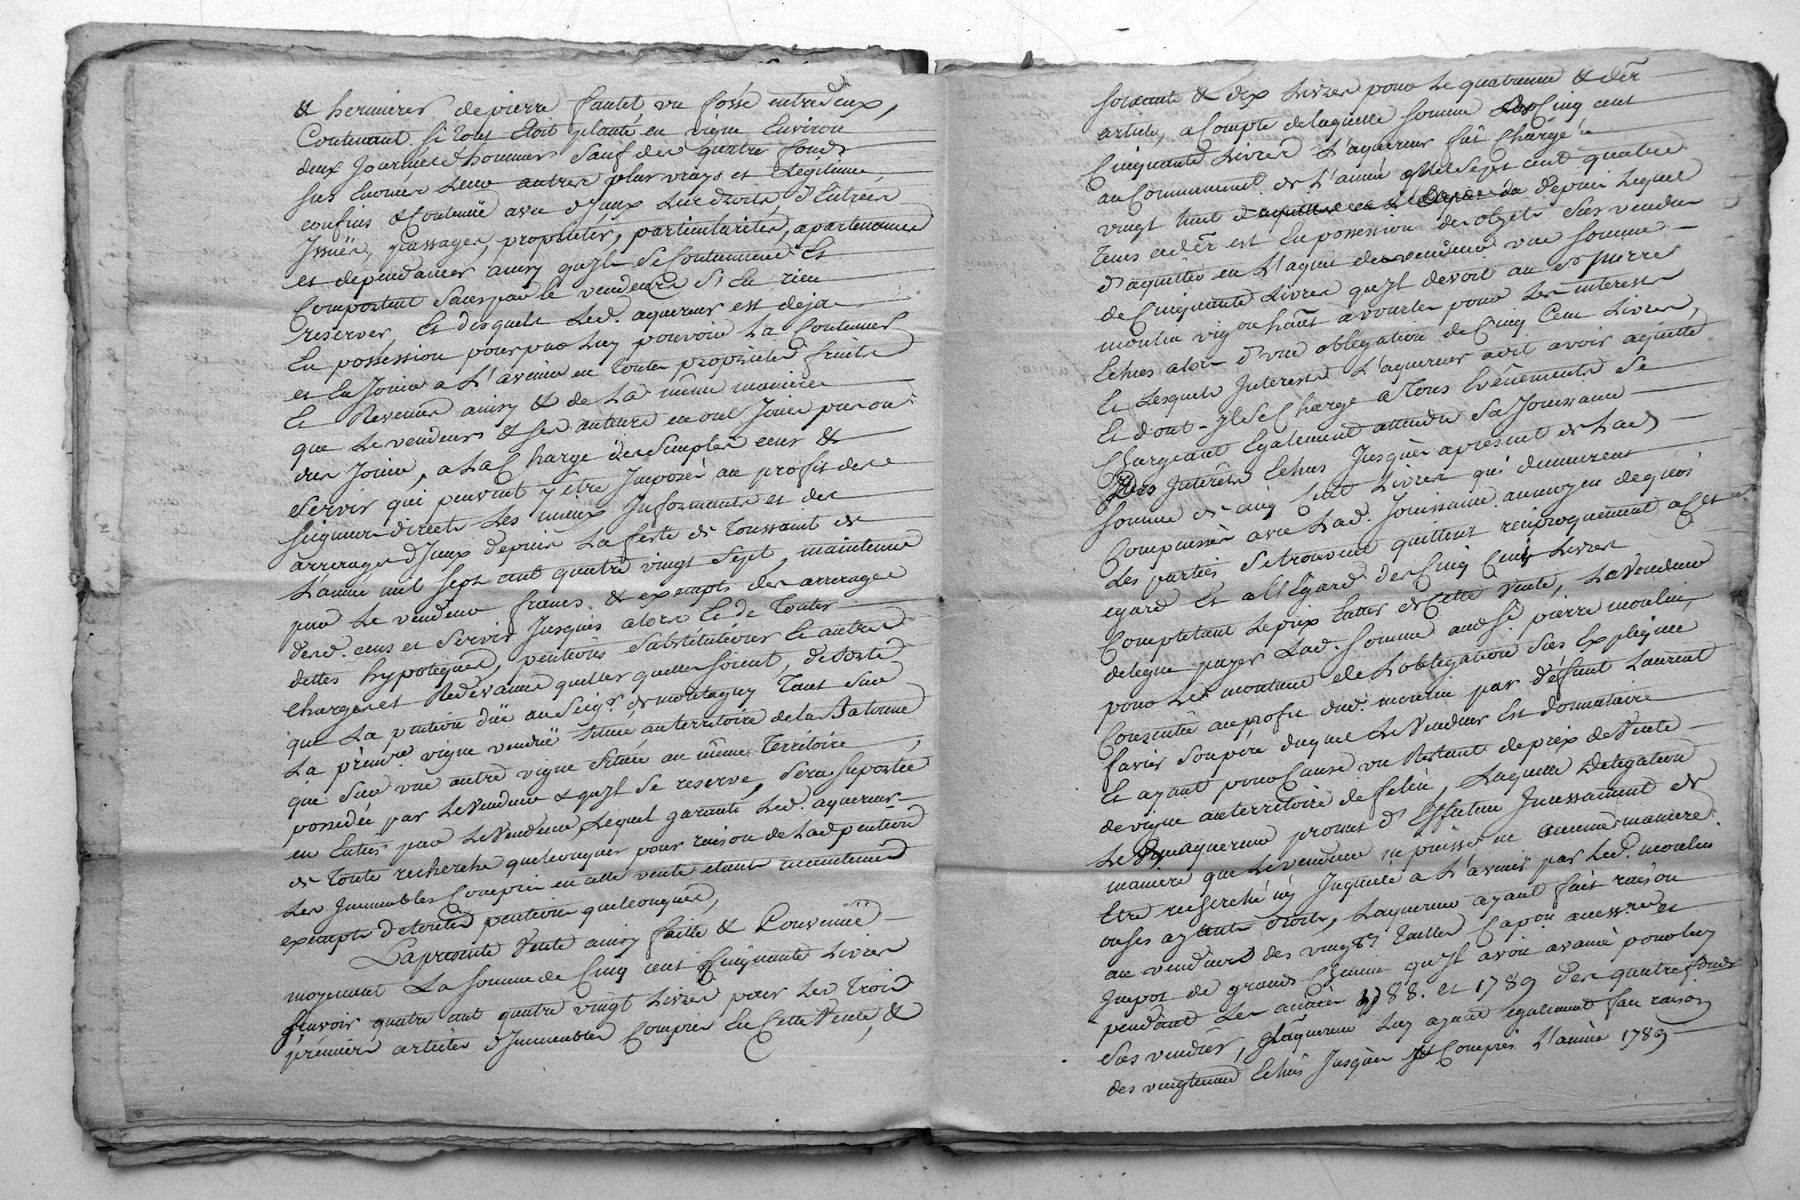 & hermiere de pierre fautet un fossé entredeux,
Contenant si tout étoit planté en vigne Environ
deux Journées d'hommes sauf des quatre fonds
sus Enoncés leurs autres plus vrays et Légitimes
confins & Contenüe avec d'Jceux Leurs droits d'Entrées
Jssües, passages, proprietés, particularités, apartenances
et dependances ainsy qu'jls se Contiennent Et
Comportent sans par le vendeurs s'En rien
reserver, Et desquels Led. aquereur est deja
En possession pour par Luy pouvoir La Continuer
et En Jouir a L'avenir en toutes proprietés fruits
Et Revenus ainsy & de La même maniere
que Le vendeurs & ses auteurs en ont Joüis pu ou
dus Joüir, a la Charge des simples cens &
Servis qui peuvent y être Jmposés au profit des
seigneurs directs Les mieux Jnformants et des
arrerages d'Jceux depuis La feste de Toussaint de
L'année mil sept cent quatre vingt sept, maintenus
par Le vendeur francs & exempts des arrerages
desd. cens et servis Jusques alors Et de Toutes
dettes hypoteques, pentions substitutions Et autres
charges et Redevances quelles quelles soient, de sorte
que La pention düe au Seigr. de montagny Tant sur
La premre vigne vendüe située au territoire de la Batonne
que sur une autre vigne située au même Territoire,
possedée par Le Vendeur & qu'jl se reserve, sera suportée
en Entier par Le Vendeur, Lequel garantit Led. aquereur
de toute recherche quelconques pour raison de Lad. pention
Les Jmmeubles Compris en cette vente etant maintenus
exempts de toutes pentions quelconques,
La presente Vente ainsy faitte & Convenüe
moyenant La somme de Cinq cent Cinquante Livres
sçavoir quatre cent quatre vingt Livres pour Les Trois
premiers articles d'Jmmeubles Compris En Cette Vente, &
soixante & dix Livres pour Le quatrieme & der
article, a Compte de laquelle somme de Cinq cent
Cinquante Livres L'aquereur fut Chargé
au Commencement de L'année mil sept cent quatre
vingt huit depuis Lequel
tems ceder est En possession des objets sus vendus
d'aquitter en L'aquit du vendeur une somme
de Cinquante Livres qu'jl devoit au Sr pierre
moulin vigneron habt a vourles pour Les interests
Echus alors d'une obligation de Cinq Cent Livres,
Et Lesquels Jnterests L'aquereur dit avoir aquitté
Et dont jl se Charge a Tous Evênements se
Chargeant Egalement attendu sa Jouissance
des Jnterêts Echus Jusqu'a present de Lad.
somme de cinq Cent Livres qui demeurent
Compensés avec Lad. Jouissance, au moyen de quoi
Les parties se trouvent quittent reciproquement a Cet
egard Et a L'Egard des Cinq Cent Livres
Completant Le prix Entier de Cette Vente, Le Vendeur
delegue payer Lad. somme aud Sr pierre moulin,
pour Le montant de L'obligation sus Expliquée
Consentie au profit dud. moulin par déffunt Laurent
favier son pere duquel Le Vendeur Est donnataire
Et ayant pour Cause un Restant de prix de Vente
de vigne au territoire de felin, Laquelle Delegation
Le aquereur promet d'Effectuer Jncessament de
maniere que Le vendeur ne puisse en aucune maniere
Etre recherché ny Jnquieté a L'avenir par Led. moulin
ou ses ayants droits, L'aquereur ayant fait raison
au vendeur des vingt. tailles Capon. accessres. et
Jmpot de grands Chemins qu'jl avoit avancé pour luy
pendant Les années 1788. et 1789 des quatre fonds
sus vendus, L'aquereur Luy ayant egalement fait raison
des vingtiemes Echus Jusques et Compris L'année 1789